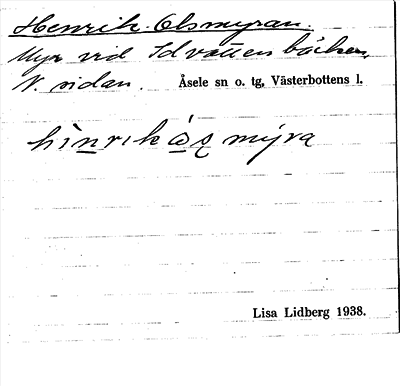 Henrik-Olsmyran.
Myr vid Idvattensbäcken,
N. sidan. Åsele sn o. tg, Västerbottens l.
hìnrik ás mýra
Lisa Lidberg 1938.